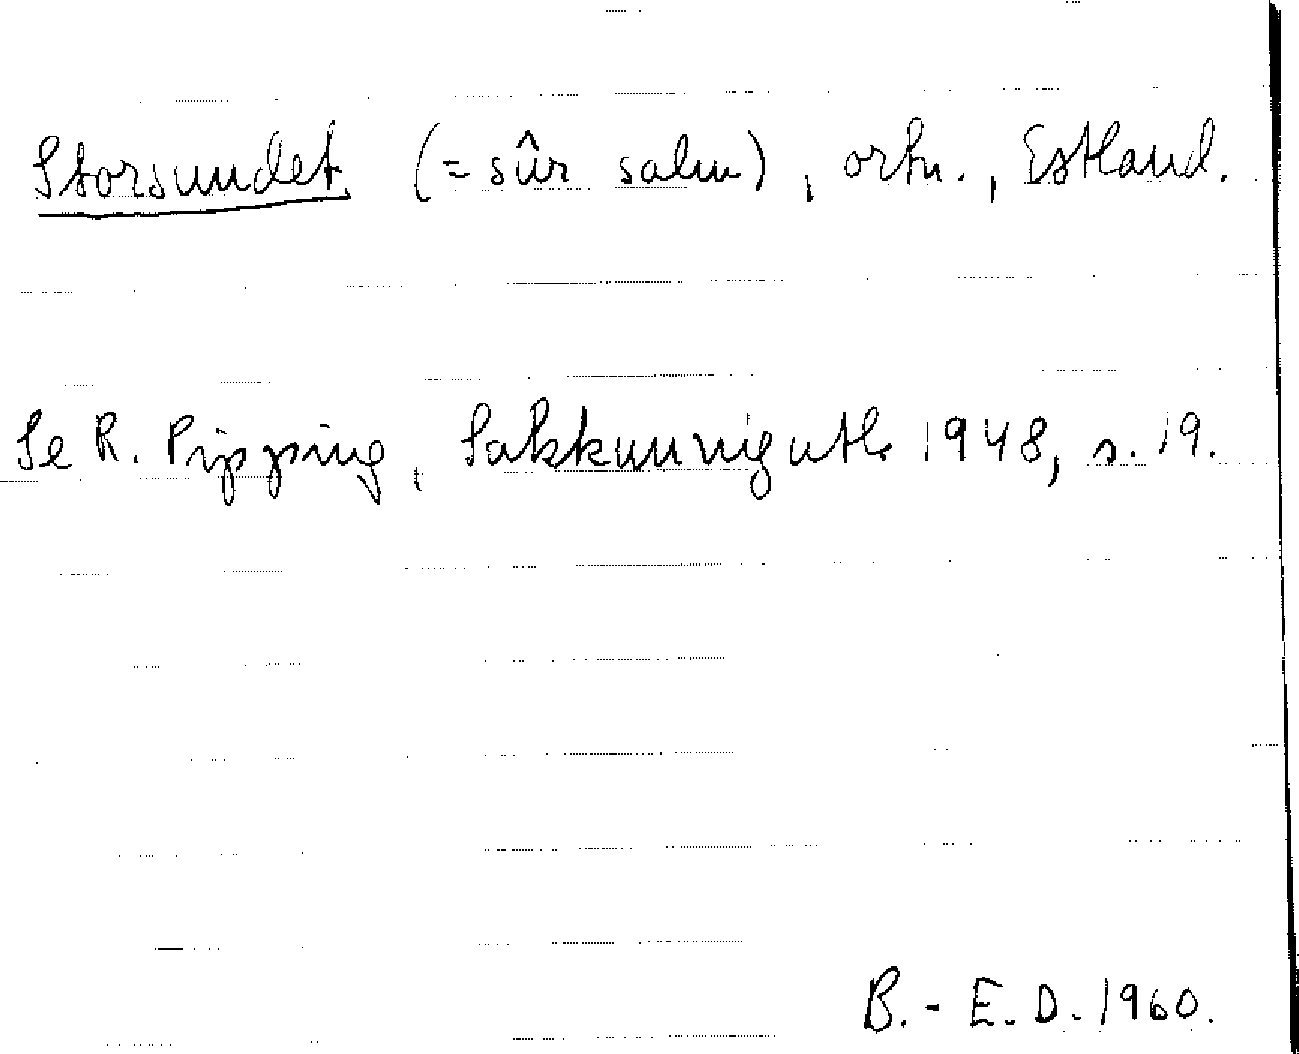 Storsundet (= sûr salm), ortn., Estland.
Se R. Pipping, Sakkunnigutl. 1948, s. 19.
B.-E. D. 1960.